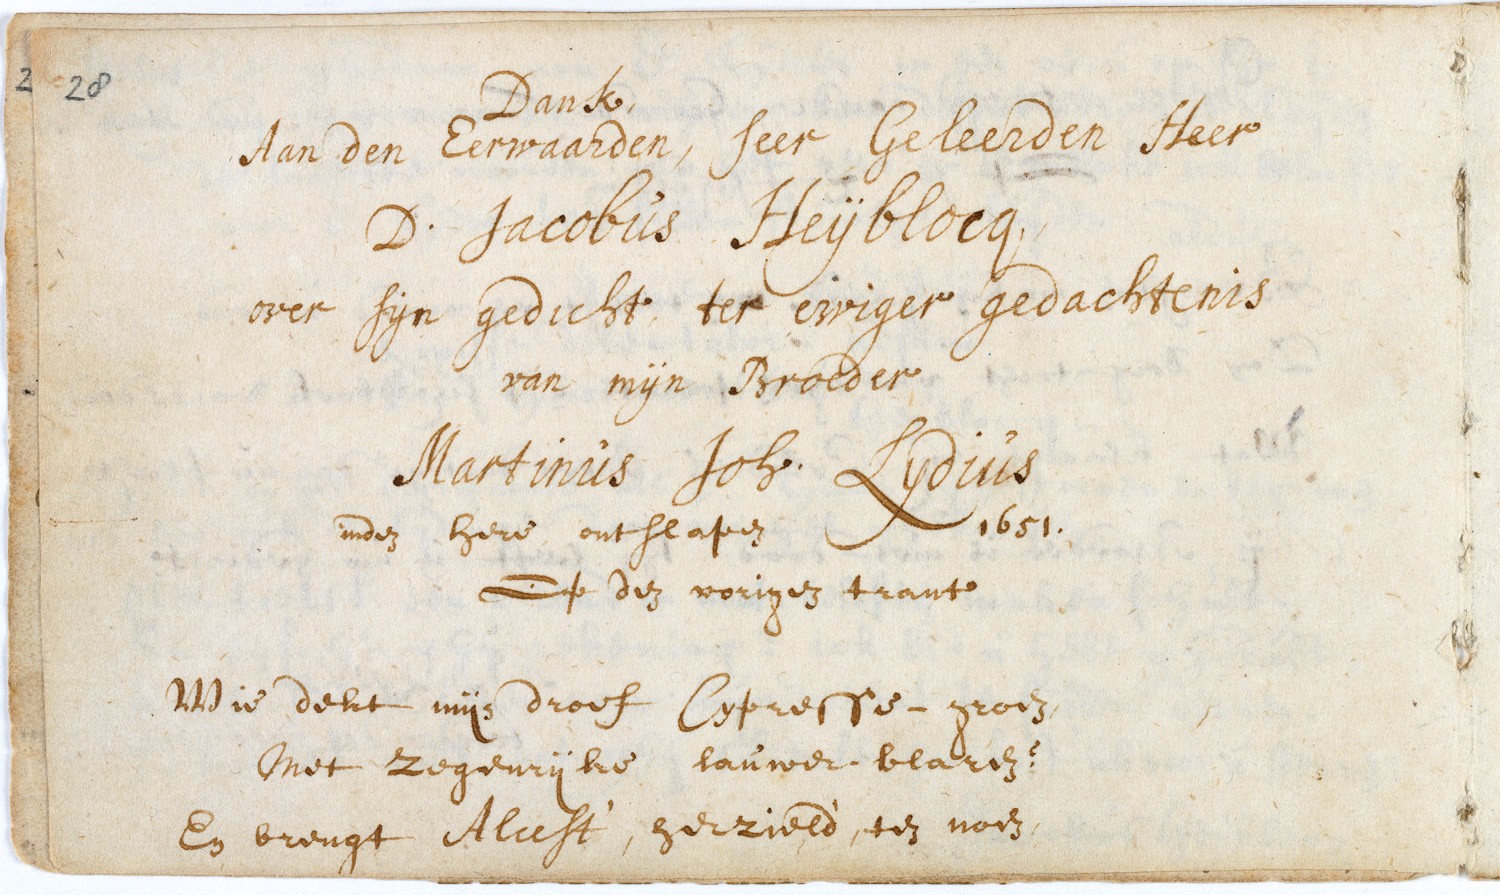 28
Dank,
Aan den Eerwaarden, seer Geleerden Heer
D. Jacobus Heÿblocq,
over sijn gedicht, ter ewiger gedachtenis
van mijn Broeder,
Martinus Joh. Lydius
inden here ontslapen 1651.
Op den vorigen trant
Wie dekt mijn droef Cypresse-groen,
Met zegenrijke lauwer-blaren?
En brengt Alcest', herzield, ten noen,